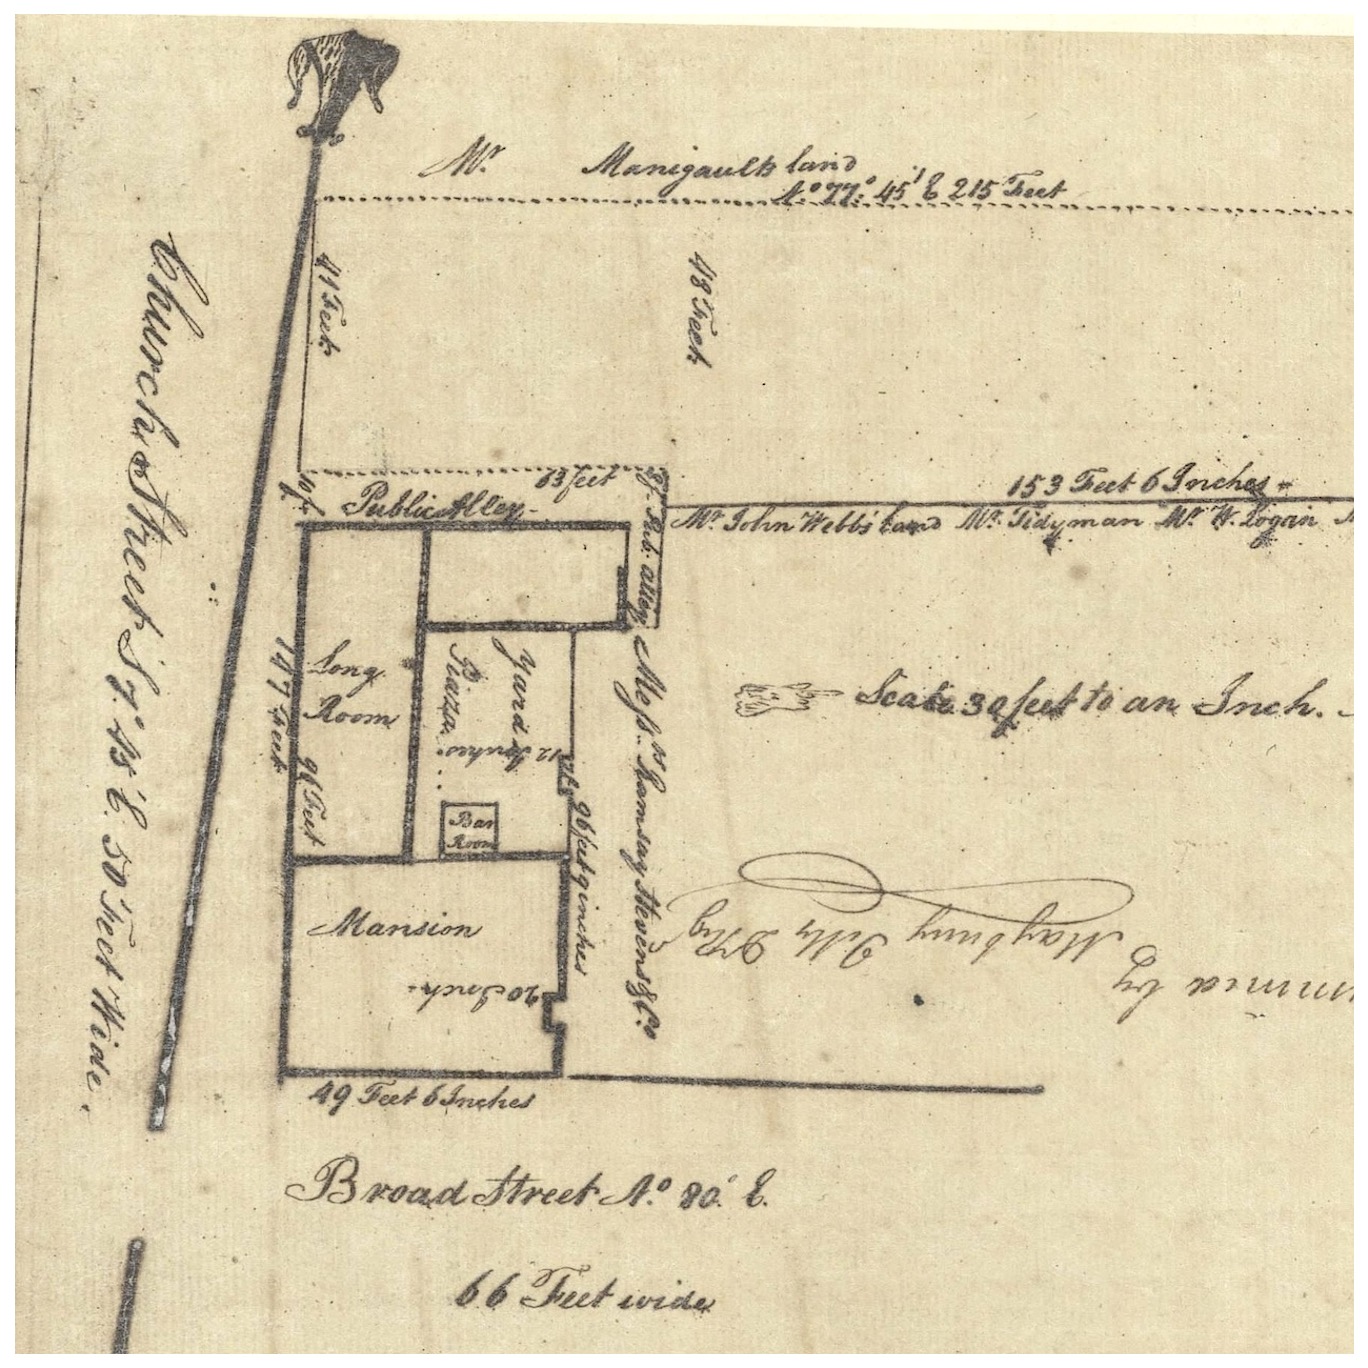 Mr. Manigault's land
No. 77.° 45' E 215 Feet
41 Feet
48 Feet
Church Street S 7.° 45' E. 50 Feet Wide.
153 Feet 6 Inches
63 feet
10 f.
Public Alley.
Pub. alley
Mr. John Webb's land Mr. Tidyman Mr. W. Logan
147 feet
Long
Room
96 Feet
Piaza
Yard
12 Inches
Bar
Room
96 feet 9 inches
Messrs. Ramsay Stevens & Co
Scale 30 feet to an Inch.
Mansion
20 Inch.
49 Feet 6 Inches
by
Broad Street No. 80.° E.
66 Feet wide